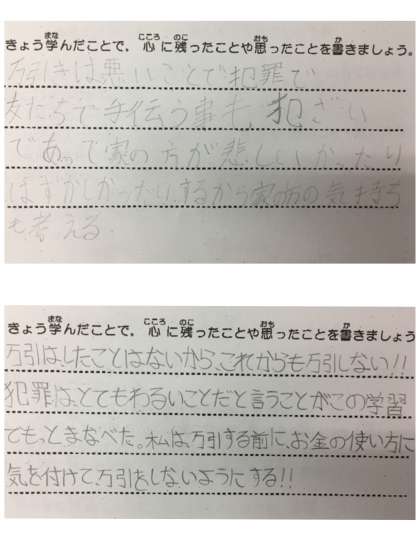 きょう学んだことで、心に残ったことや思ったことを書きましょう。
万引きは悪いことで犯罪で
友だちで手伝う事も、犯ざい
であって家の方が悲しいかったり
はずかしかったりするから家の方の気持ち
も考える。
きょう学んだことで、心に残ったことや思ったことを書きましょう
万引は、したことはないから、これからも万引しない!!
犯罪は、とてもわるいことだと言うことがこの学習
でもっとまなべた。私は、万引する前に、お金の使い方に
気を付けて、万引をしないようにする!!